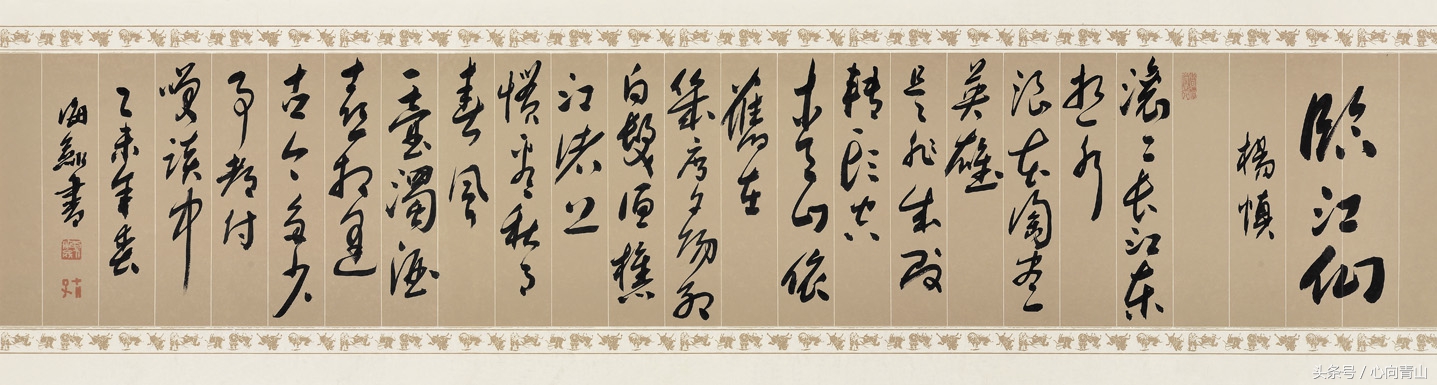 臨江仙
楊慎
滾〻長江東
逝水
浪花淘盡
英雄
是非成敗
轉頭空
青山依
舊在
幾度夕陽紅
白髮漁樵
江渚上
慣看秋月
春風
一壺濁酒
喜相逢
古今多少
事都付
笑談中
乙未年春
海書
头条号 / 心向青山